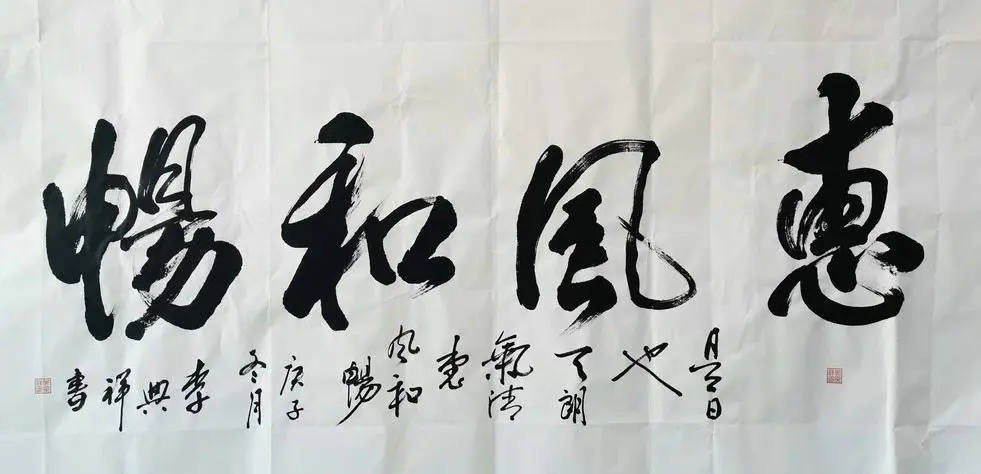 惠風和暢
是日
也
天朗
氣清
惠
风和
暢
庚子
冬月
李
典
祥
書